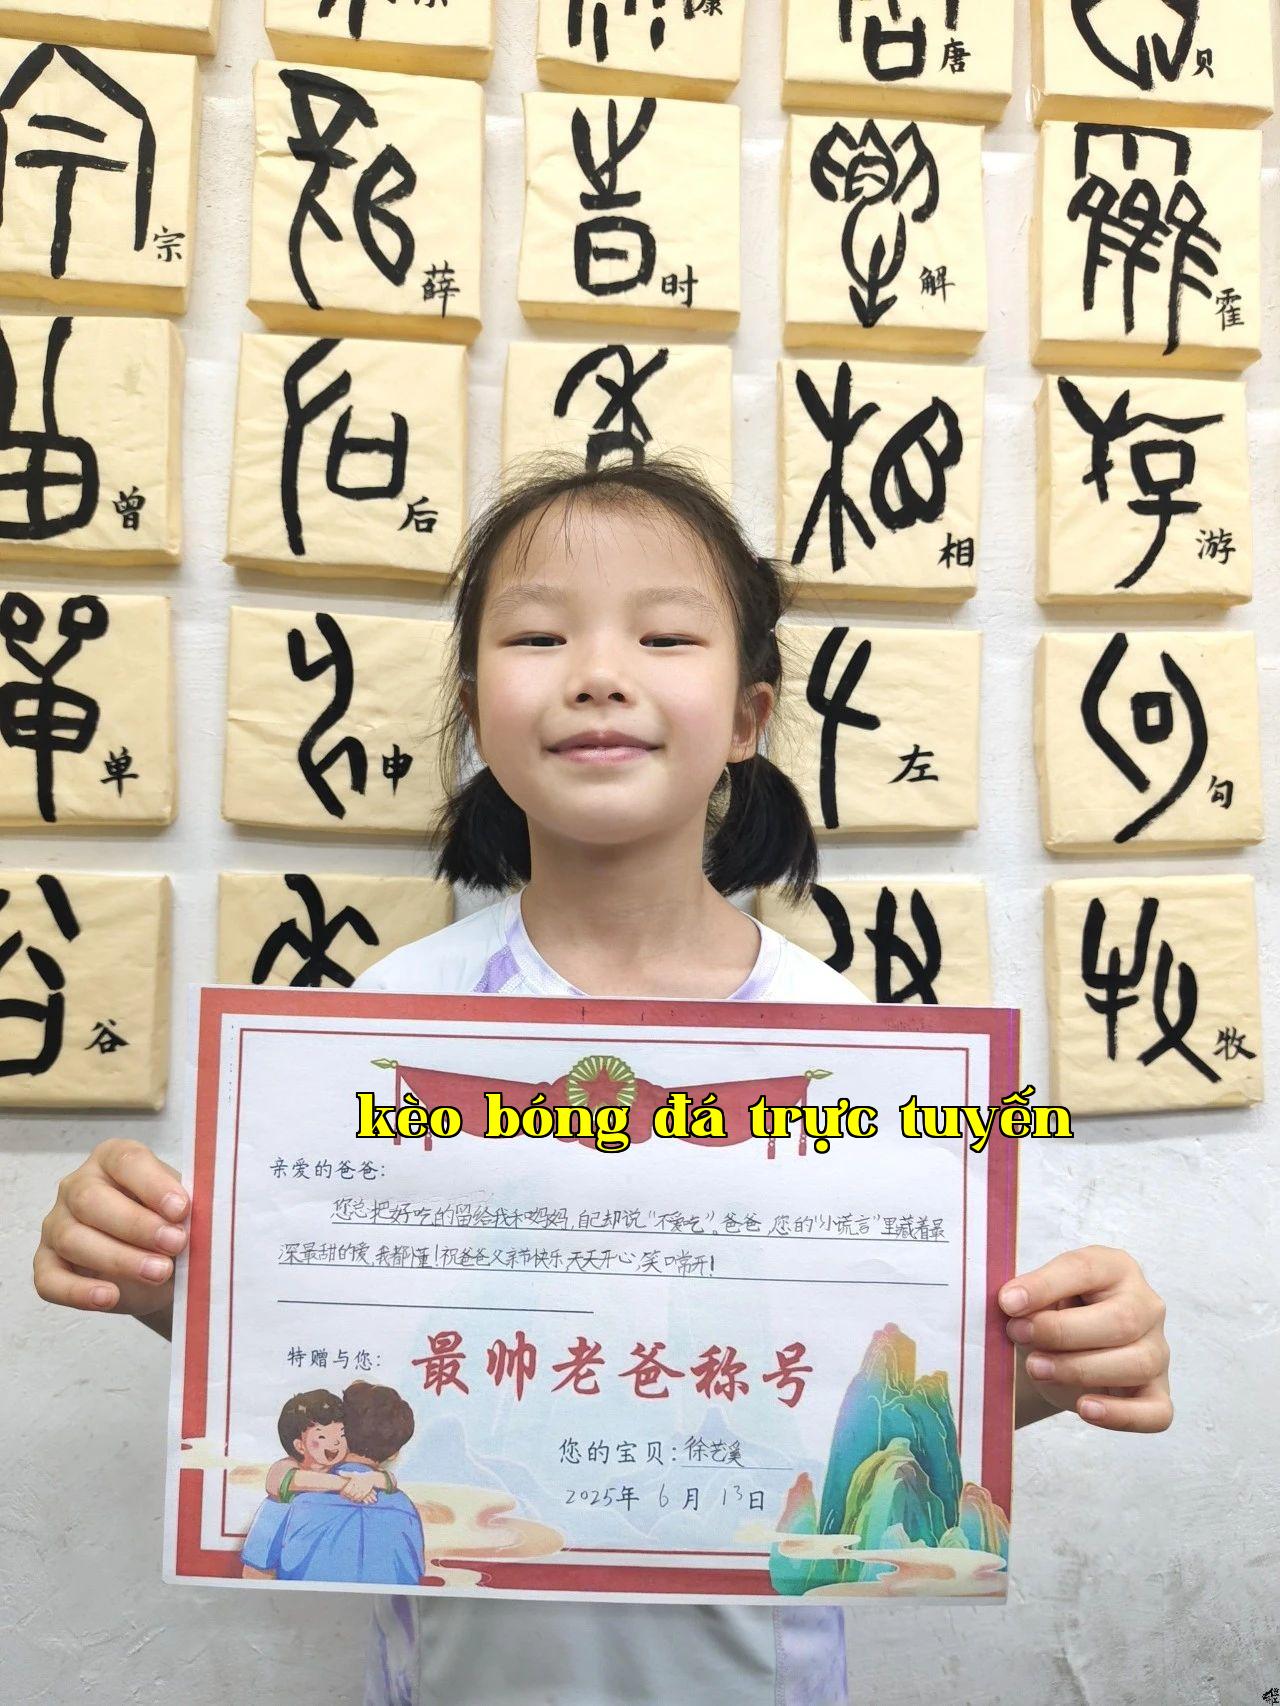 康
唐
贝
宗
薛
时
解
霍
曾
后
相
游
单
申
左
句
谷
牧
kèo bóng đá trực tuyến
亲爱的爸爸：
您总把好吃的留给我和妈妈，自己却说“不爱吃”。爸爸，您的“小谎言”里藏着最
深最甜的爱，我都懂！祝爸爸父亲节快乐，天天开心，笑口常开！
特赠与您：
最帅老爸称号
您的宝贝：徐艺溪
2025年 6 月 13日